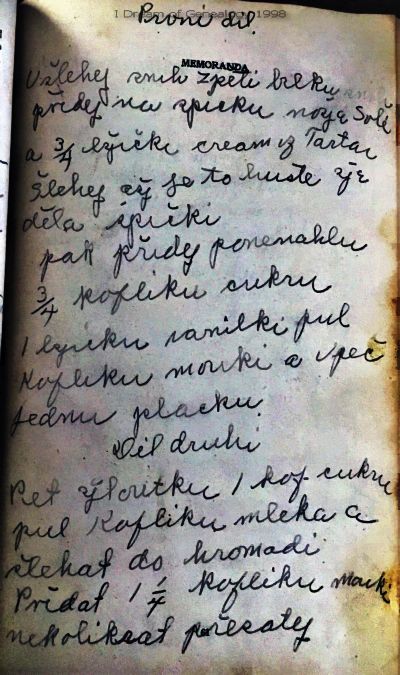 I Dream of Genealogy 1998
Prvni dil.
MEMORANDA
Ušlehej snih z peti bilku
přidej na spicku nože Sole
a 3/4 lžički cream of Tartar
šlehej až je to huste že
děla špički
pak přidy ponenahlu
3/4 kofliku cukru
1 lyžicku vanilki pul
Kofliku mouki a upeč
jednu placku.
Dil druhi
Pet žloutku 1 kof- cukru
pul Kofliku mleka a
šlehat do hromadi
Přidat 1 1/4 kofliku mouki
nekolikrat přesaty